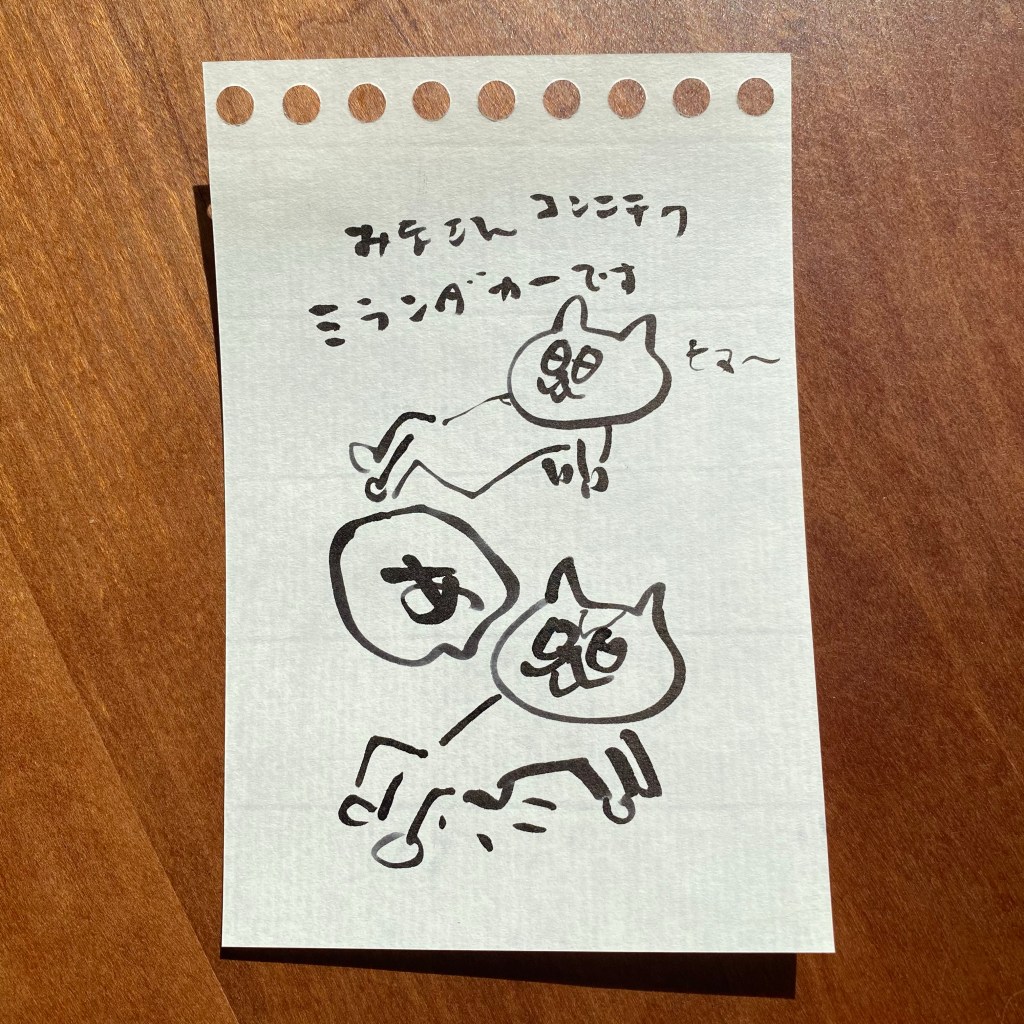 みなさん コンニチワ
ミランダカーです
あ